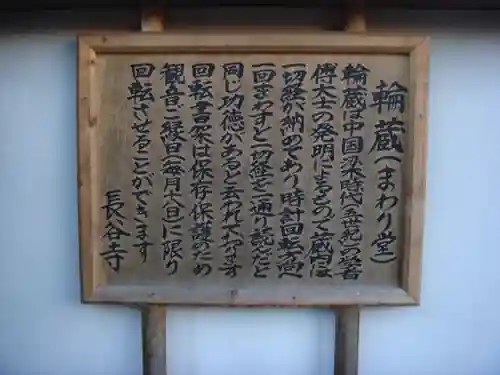 輪蔵(まわり堂)
輪蔵は中国梁時代(五世紀)の学者
傅大士の発明によるもので蔵内には
一切経が納めてあり時計回転方向へ
一回まわすと一切経を一通り読んだと
同じ功徳があると云われて居ます
回転書架は保存・保護のため
観音ご縁日(毎月十八日)に限り
回転させることができます
長谷寺